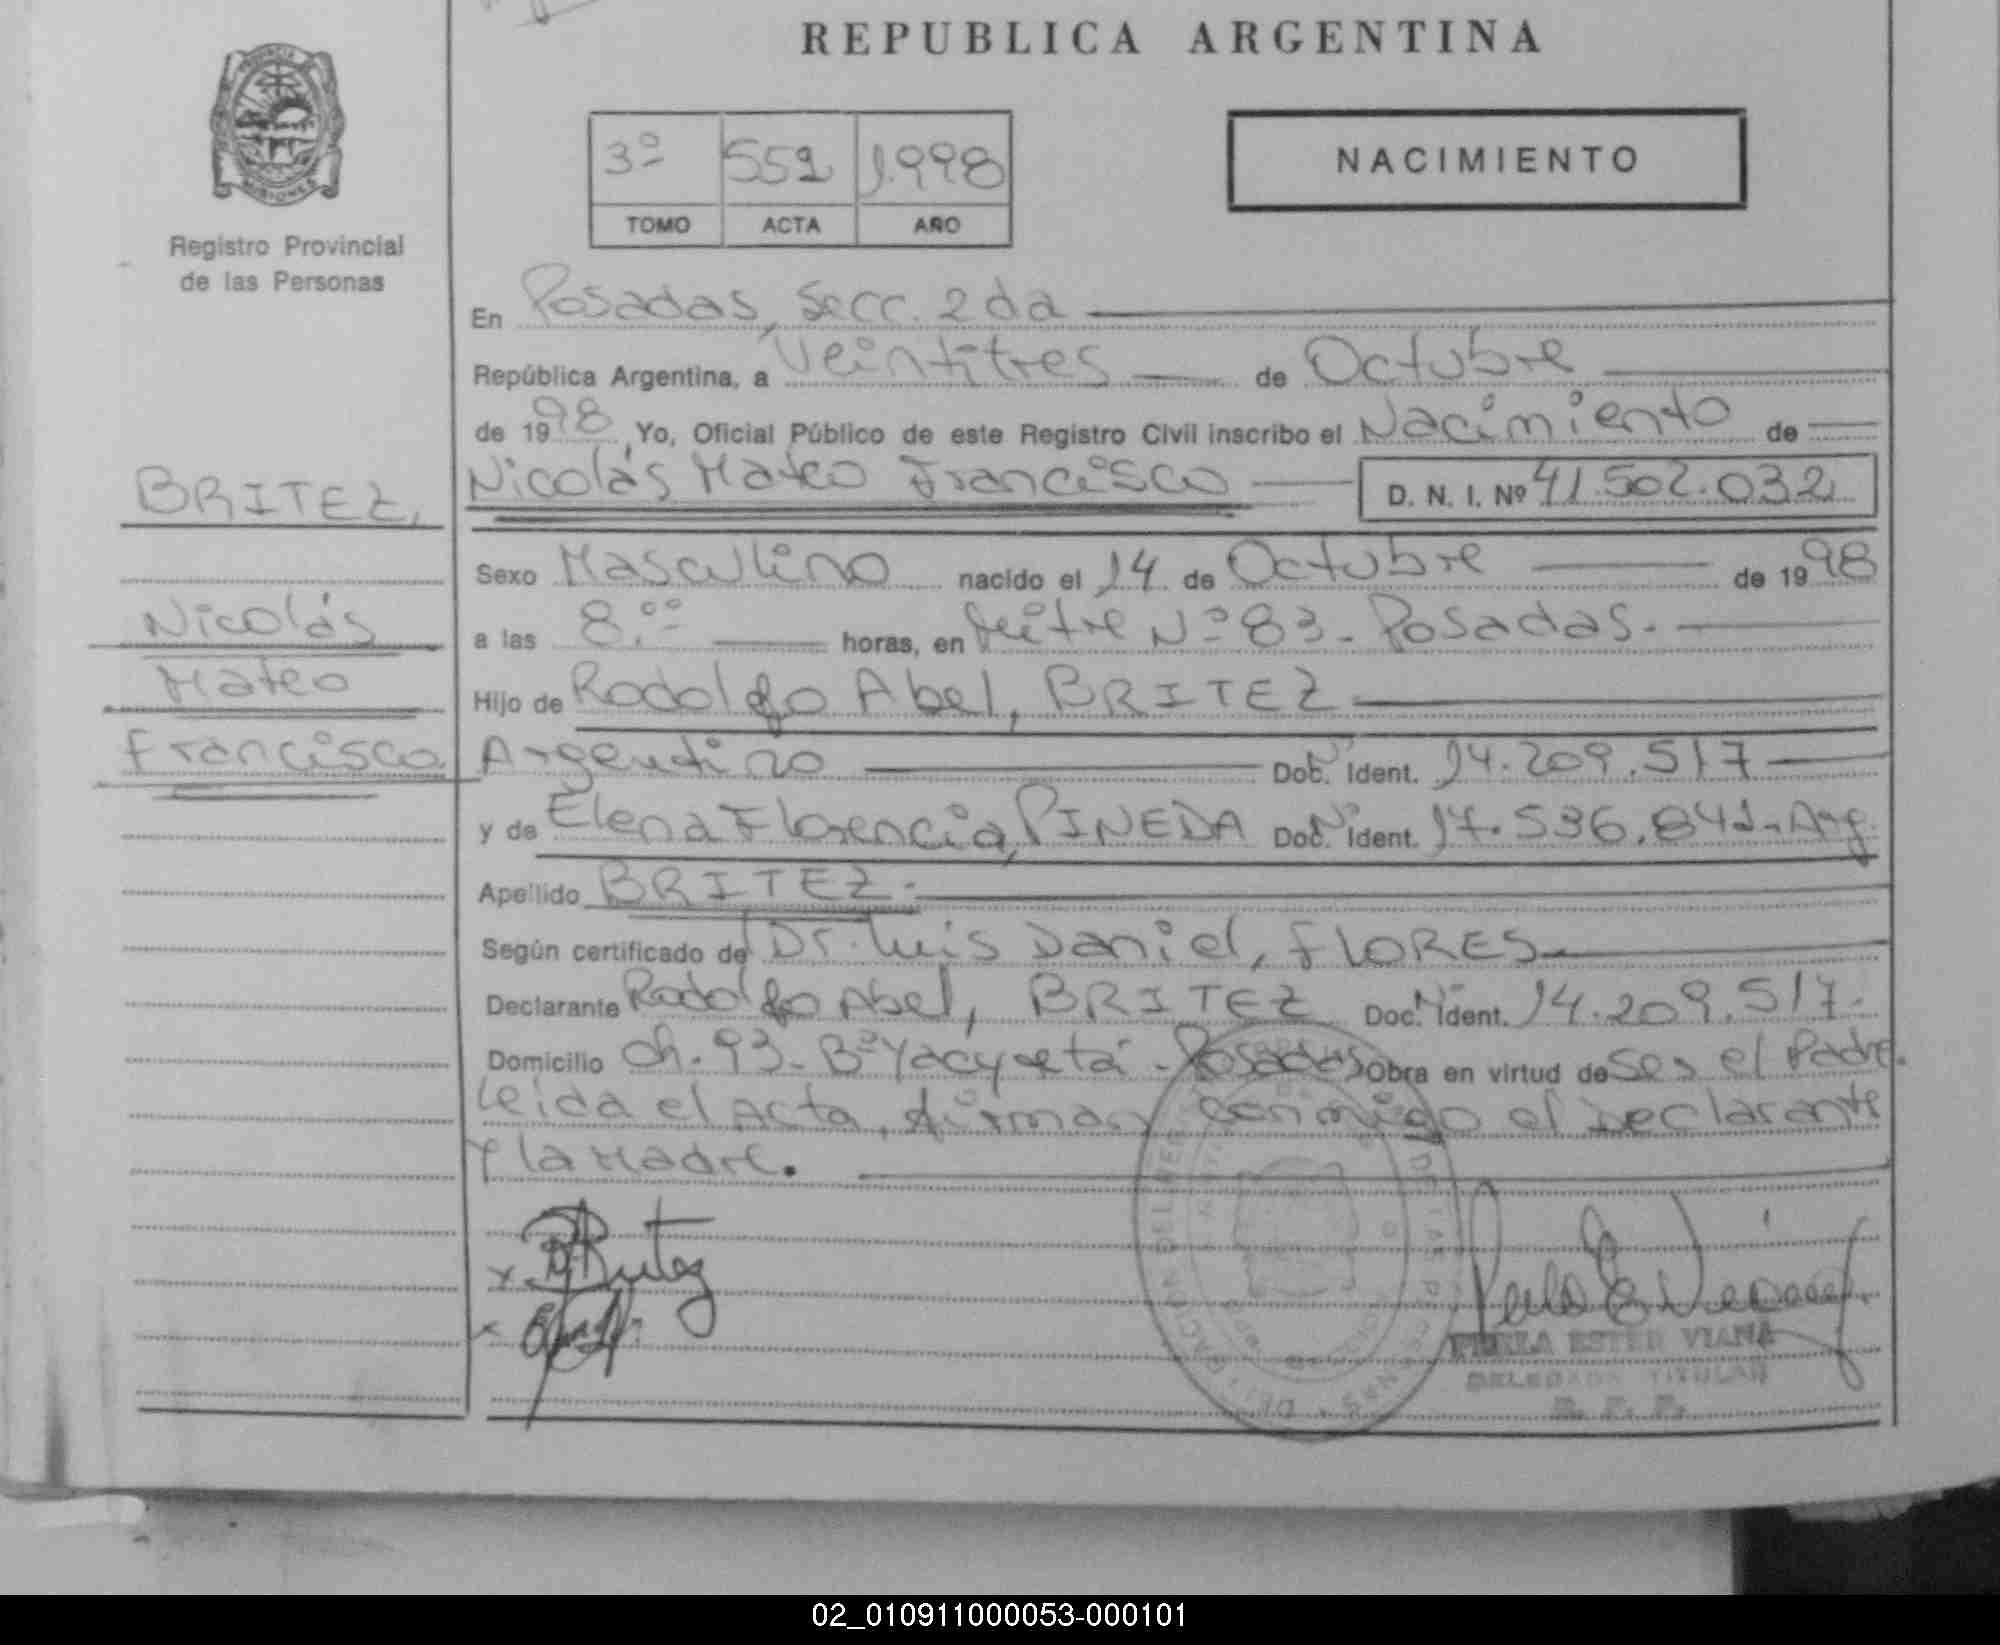 REPUBLICA ARGENTINA
PROVINCIA DE
MISIONES
Registro Provincial
de las Personas
3º 551 1998
TOMO ACTA AÑO
NACIMIENTO
En Posadas, Secc. 2da
República Argentina, a Veintitres de Octubre
de 1998 Yo, Oficial Público de este Registro Civil inscribo el Nacimiento de
BRITEZ,
Nicolás Mateo Francisco D. N. I. Nº 41.502.032
Sexo Masculino nacido el 14 de Octubre de 1998
Nicolás
a las 8.ºº horas, en Mitre Nº 83 - Posadas.
Mateo
Hijo de Rodolfo Abel, BRITEZ
Francisco
Argentino Doc. Nº Ident. 14.209.517
y de Elena Florencia, PINEDA Doc. Nº Ident. 17.536.841 - Arg.
Apellido BRITEZ.
Según certificado de Dr. Luis Daniel, FLORES
Declarante Rodolfo Abel, BRITEZ Doc. Nº Ident. 14.209.517.
Domicilio Ch. 93 - Bº Yacyretá - Posadas Obra en virtud de Ser el Padre.
Leida el Acta, firman conmigo el Declarante
y la Madre.
x Britez
x
PERLA ESTER VIANA
DELEGADA TITULAR
R. P. P.
02_010911000053-000101